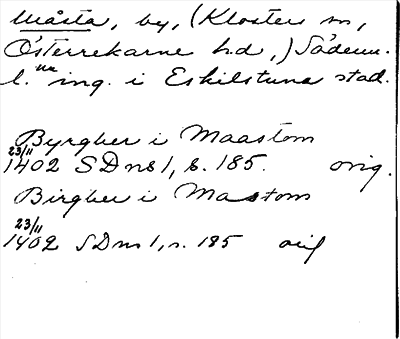 Måsta, by, (Klosters sn,
Österrekarne hd,) Söderm.
l. nu ing. i Eskilstuna stad.
Byrgher i Maastom
23/11
1402 SDns 1, s. 185. orig.
Birgher i Mastom
23/11
1402 SDns 1, s. 185 orig